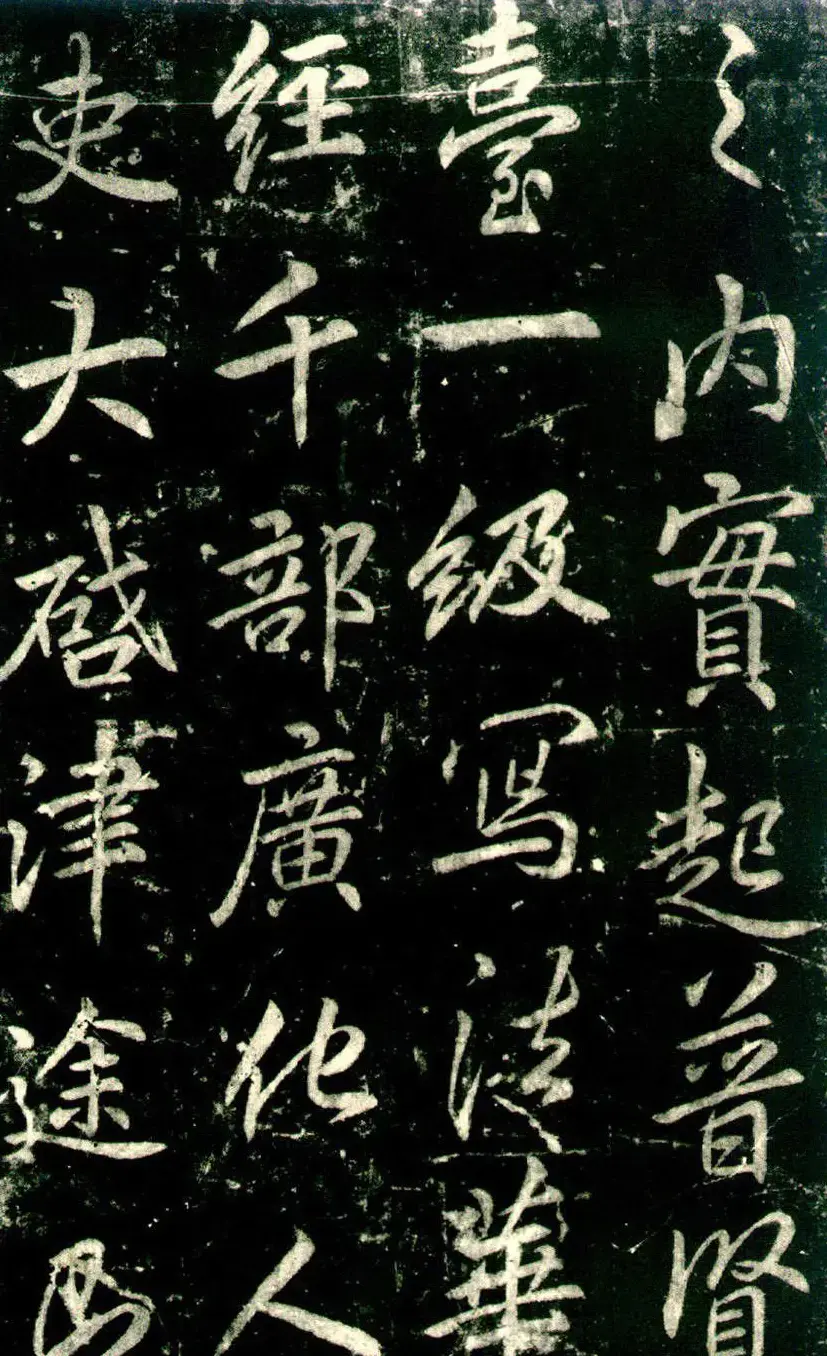 之内實起普賢
臺一級寫法華
經千部廣化人
吏大啓津途西